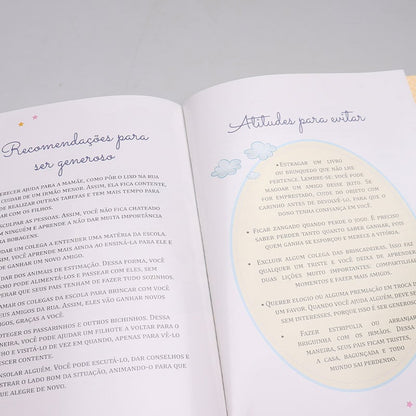 Recomendações para
ser generoso
ERECER AJUDA PARA A MAMÃE, COMO PÔR O LIXO NA RUA
CUIDAR DE UM IRMÃO MENOR. ASSIM, ELA FICA CONTENTE,
DE REALIZAR OUTRAS TAREFAS E TEM MAIS TEMPO PARA
AR COM OS FILHOS.
SCULPAR AS PESSOAS. ASSIM, VOCÊ NÃO FICA CHATEADO
M NINGUÉM E APRENDE A NÃO DAR MUITA IMPORTÂNCIA
BOBAGENS.
DAR UM COLEGA A ENTENDER UMA MATÉRIA DA ESCOLA.
SIM, VOCÊ APRENDE MAIS AINDA AO ENSINÁ-LA PARA ELE E
DE GANHAR UM NOVO AMIGO.
DAR DOS ANIMAIS DE ESTIMAÇÃO. DESSA FORMA, VOCÊ
SMO PODE ALIMENTÁ-LOS E PASSEAR COM ELES, SEM
PERAR QUE SEUS PAIS TENHAM DE FAZER TUDO SOZINHOS.
AMAR OS COLEGAS DA ESCOLA PARA BRINCAR COM
US AMIGOS DA RUA. ASSIM, ELES VÃO GANHAR NOVOS
IGOS, GRAÇAS A VOCÊ.
OTEGER OS PASSARINHOS E OUTROS BICHINHOS. DESSA
NEIRA, VOCÊ PODE AJUDAR UM FILHOTE A VOLTAR PARA O
HO E VISITÁ-LO DE VEZ EM QUANDO, APENAS PARA VÊ-LO
ESCER CONTENTE.
NSOLAR ALGUÉM. VOCÊ PODE ESCUTÁ-LO, DAR CONSELHOS E
STRAR O LADO BOM DA SITUAÇÃO, ANIMANDO-O PARA QUE
QUE ALEGRE DE NOVO.
Atitudes para evitar
• ESTRAGAR UM LIVRO
OU BRINQUEDO QUE NÃO LHE
PERTENCE. LEMBRE-SE: VOCÊ PODE
MAGOAR UM AMIGO DESSE JEITO. SE
FOR EMPRESTADO, CUIDE DO OBJETO COM
CARINHO ANTES DE DEVOLVÊ-LO, PARA QUE O
DONO TENHA CONFIANÇA
• FICAR ZANGADO QUANDO PERDE O JOGO. É PRECISO
SABER PERDER TANTO QUANTO SABER GANHAR, POIS
QUEM GANHA SE ESFORÇOU E MERECEU A VITÓRIA.
• EXCLUIR ALGUM COLEGA DAS BRINCADEIRAS. ISSO FAZ
QUALQUER UM TRISTE E VOCÊ DEIXA DE APRENDER
DUAS LIÇÕES MUITO IMPORTANTES: COMPARTILHAR
MOMENTOS E FAZER MAIS AMIGOS.
• QUERER ELOGIO OU ALGUMA PREMIAÇÃO EM TROCA D
UM FAVOR. QUANDO VOCÊ AJUDA ALGUÉM, DEVE SE
SEM INTERESSES, PORQUE ISSO É SER GENEROSO.
• FAZER ESTRIPULIA OU ARRANJAR
BRIGUINHA COM OS IRMÃOS. DESSA
MANEIRA, SEUS PAIS FICAM TRISTES,
A CASA, BAGUNÇADA E TODO
MUNDO SAI PERDENDO.